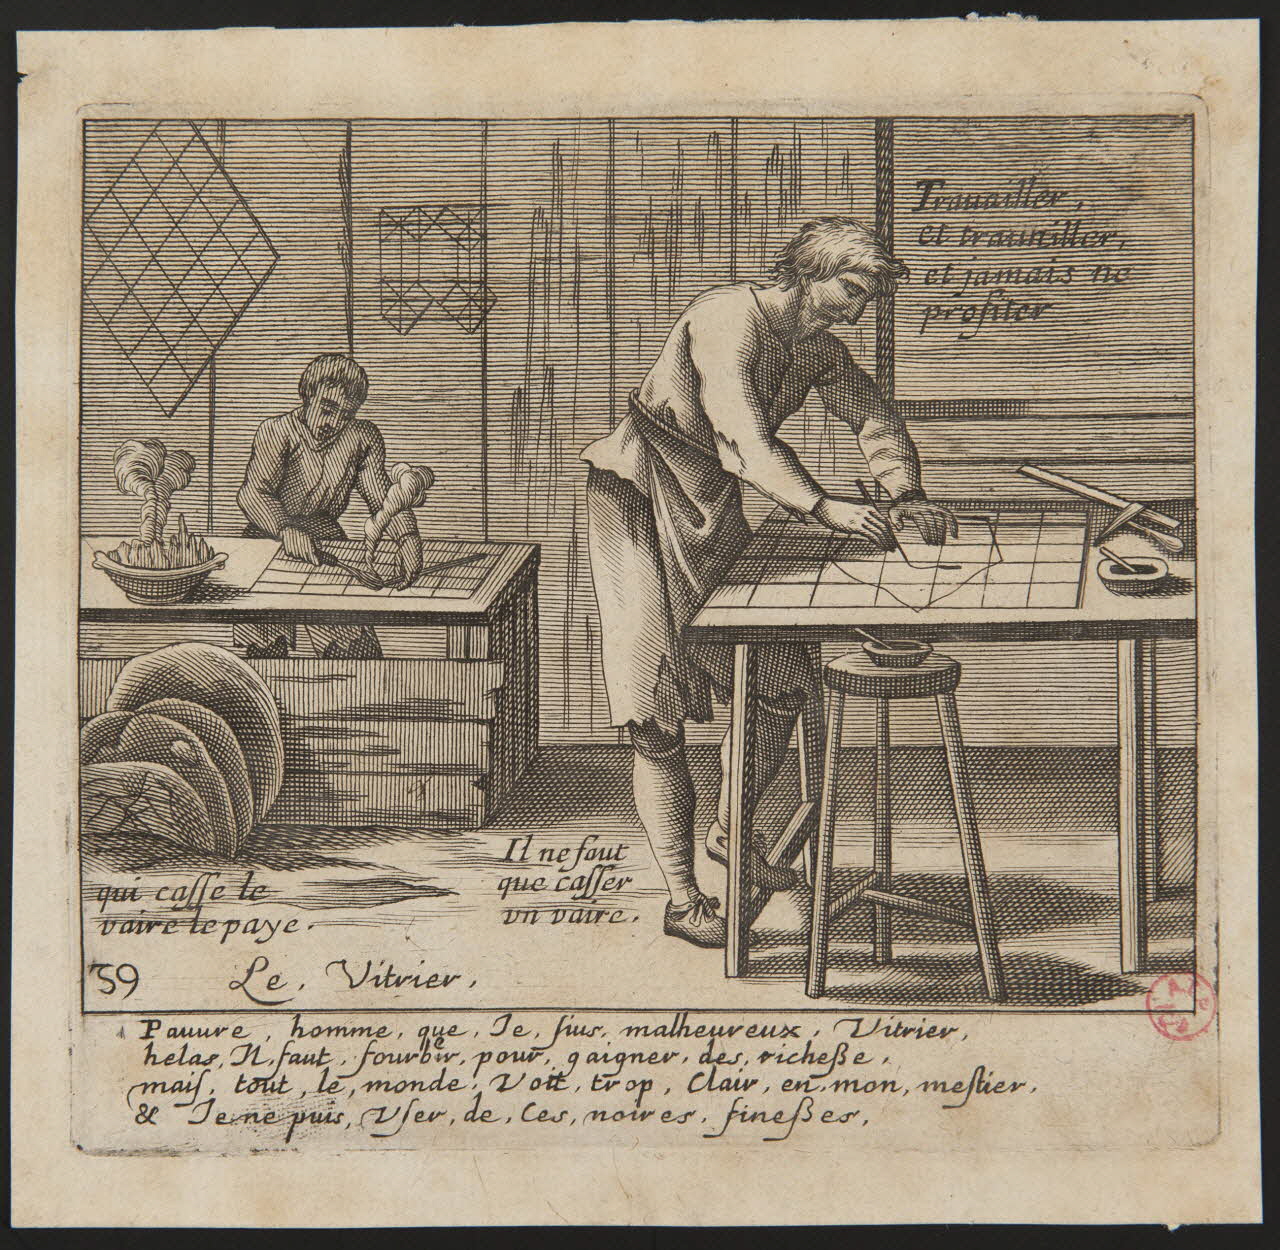 Trauailler,
et trauailler,
et jamais ne
profiter
Il ne faut
que casser
vn vaire.
qui casse le
vaire le paye.
39 Le, Vitrier,
Pauure, homme, que, Je, suis, malheureux, Vitrier,
helas, Il, faut, fourber, pour, gaigner, des, richeße,
mais, tout, le, monde, Voit, trop, Clair, en, mon, mestier,
& Je ne puis, Vser, de, Ces, noires, fineßes,